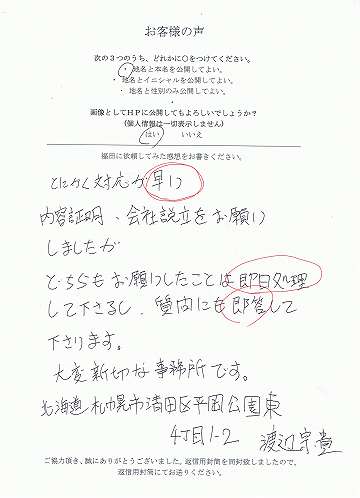 お客様の声
次の3つのうち、どれかに○をつけてください。
・地名と本名を公開してよい。
・地名とイニシャルを公開してよい。
・地名と性別のみ公開してよい。
画像としてHPに公開してもよろしいでしょうか?
(個人情報は一切表示しません)
はい いいえ
福田に依頼してみた感想をお書きください。
とにかく対応が早い
内容証明、会社設立をお願い
しましたが
どちらもお願いしたことは即日処理
して下さるし、質問にも即答して
下さります。
大変親切な事務所です。
北海道札幌市清田区平岡公園東
4丁目1-2 渡辺宗
ご協力頂き、誠にありがとうございました。返信用封筒を同封致しましたので、
返信用封筒にてお送りください。